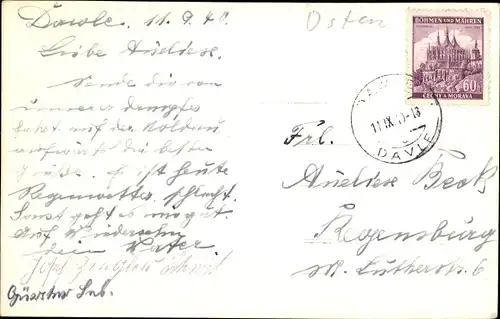 Dawle. 11.9.40.
Osten
Liebe Aneliese.
Sende dir von
unserer Dampfer
fahrt auf der Moldau
aufwärts die besten
Grüße. Es ist heute
Regenwetter schlecht.
Sonst geht es uns gut.
Auf Wiedersehn
dein Vater
Josef
Schmid
BÖHMEN UND MÄHREN
60
ČECHY A MORAVA
11.IX.40-18
DAVLE
Frl.
Aneliese Beck
Regensburg
Lutherstr. 6